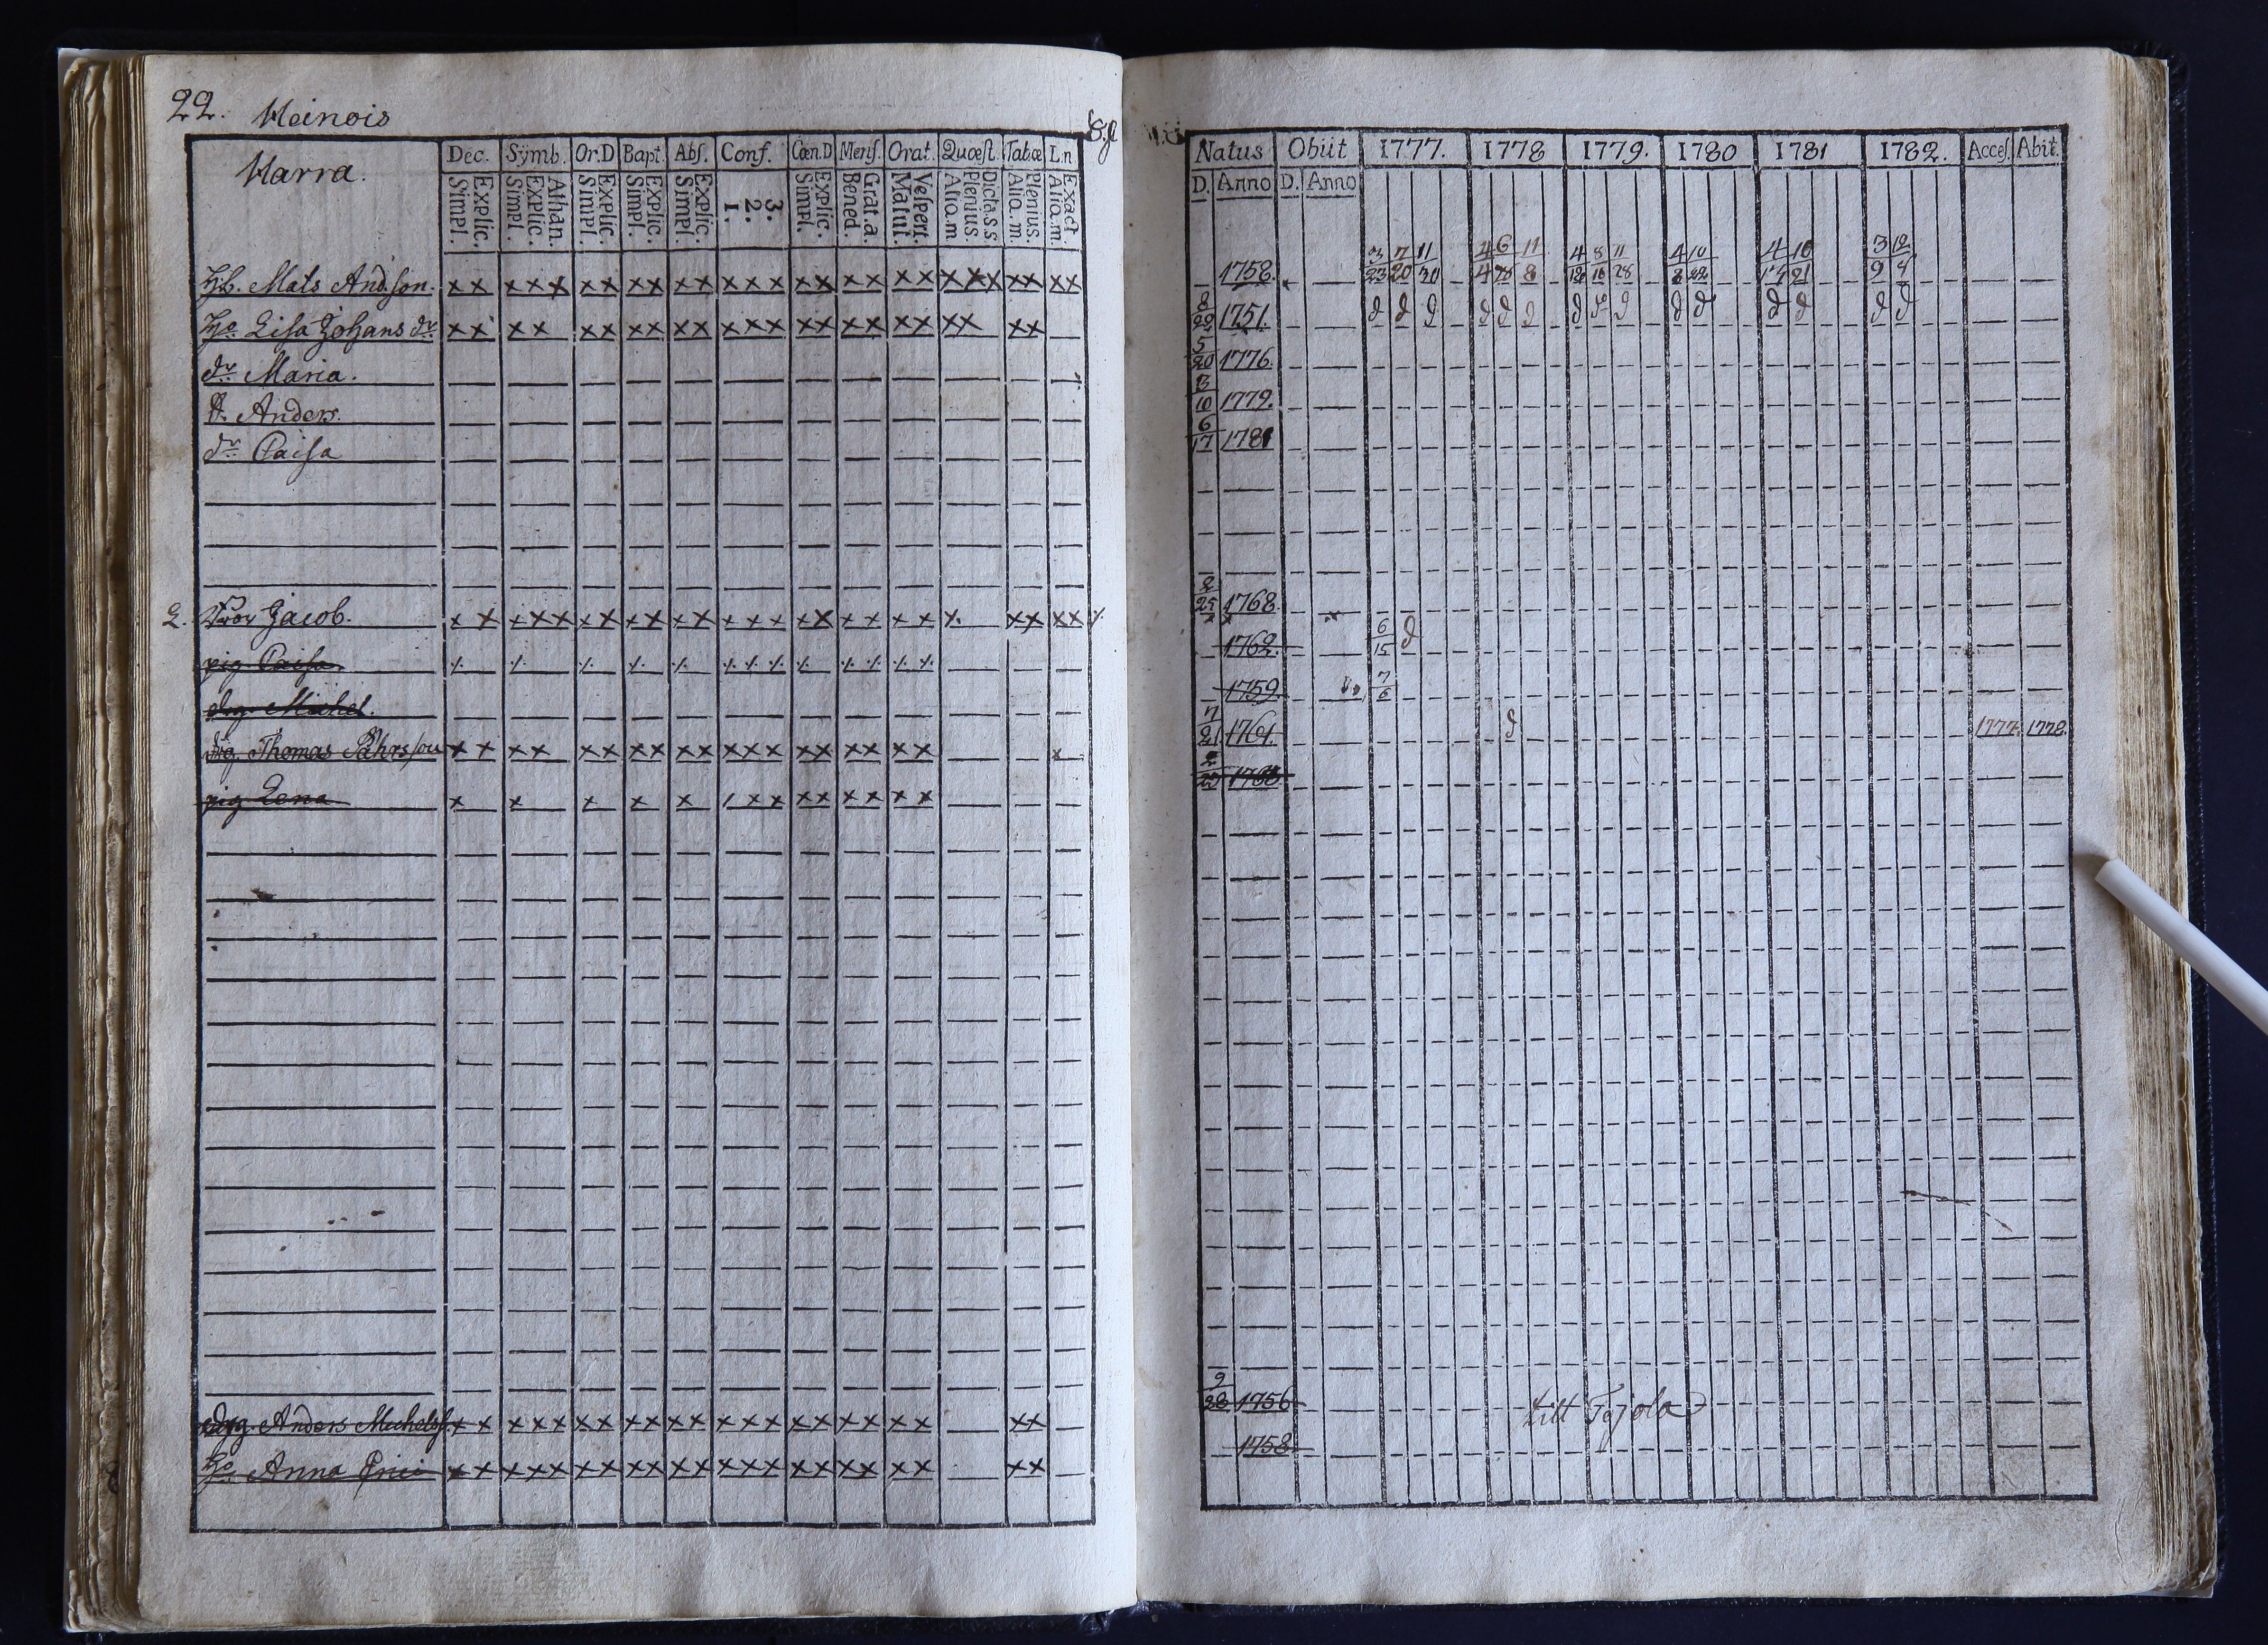 22. Heinois
Harra.
Dec. Symb. Or.D Bapt. Abs. Conf. Cœn.D Mens. Orat. Quæst. Tabæ L.n.
Explic. Simpl. Athan. Explic. Simpl. Explic. Simpl. Explic. Simpl. Explic. Simpl. 3. 2. 1. Explic. Simpl. Grat.a. Bened. Vespert. Matut. Dicta.s.s Plenius. Aliq.m Plenius. Aliq.m. Exact. Aliq.m.
Natus Obiit 1777. 1778 1779. 1780 1781 1782. Acces. Abit.
D. Anno D. Anno
3/23 7/20 11/30 4/4 6/28 11/8 4/12 8/16 11/28 4/8 10/22 4/14 10/21 3/9 12/9
Hb. Mats And.son. xx xxx xx xx xx xxx xx xx xx xxx xx xx 1758.
Ho. Lisa Johans dr xx xx xx xx xx xxx xx xx xx xx xx 8/22 1751.
dr. Maria. 5/20 1776.
Anders. 3/10 1779.
dr Caisa 6/17 1781
2. Jacob. xx xxx xx xx xx xxx xx xx xx x. xx xx 2/25 1768.
pig. Caisa 1762. 6/15
drg. Michel. 1759 7/6
drg. Thomas Påhrsson xx xx xx xx xx xxx xx xx xx x 7/21 1761. 1777. 1778.
pig Lena x x x x x /xx xx xx xx 2/25 1768
drg. Anders Michelss. xx xxx xx xx xx xxx xx xx xx xx 9/28 1756 till Tojola
Ho. Anna Erici xx xxx xx xx xx xxx xx xx xx xx 1758